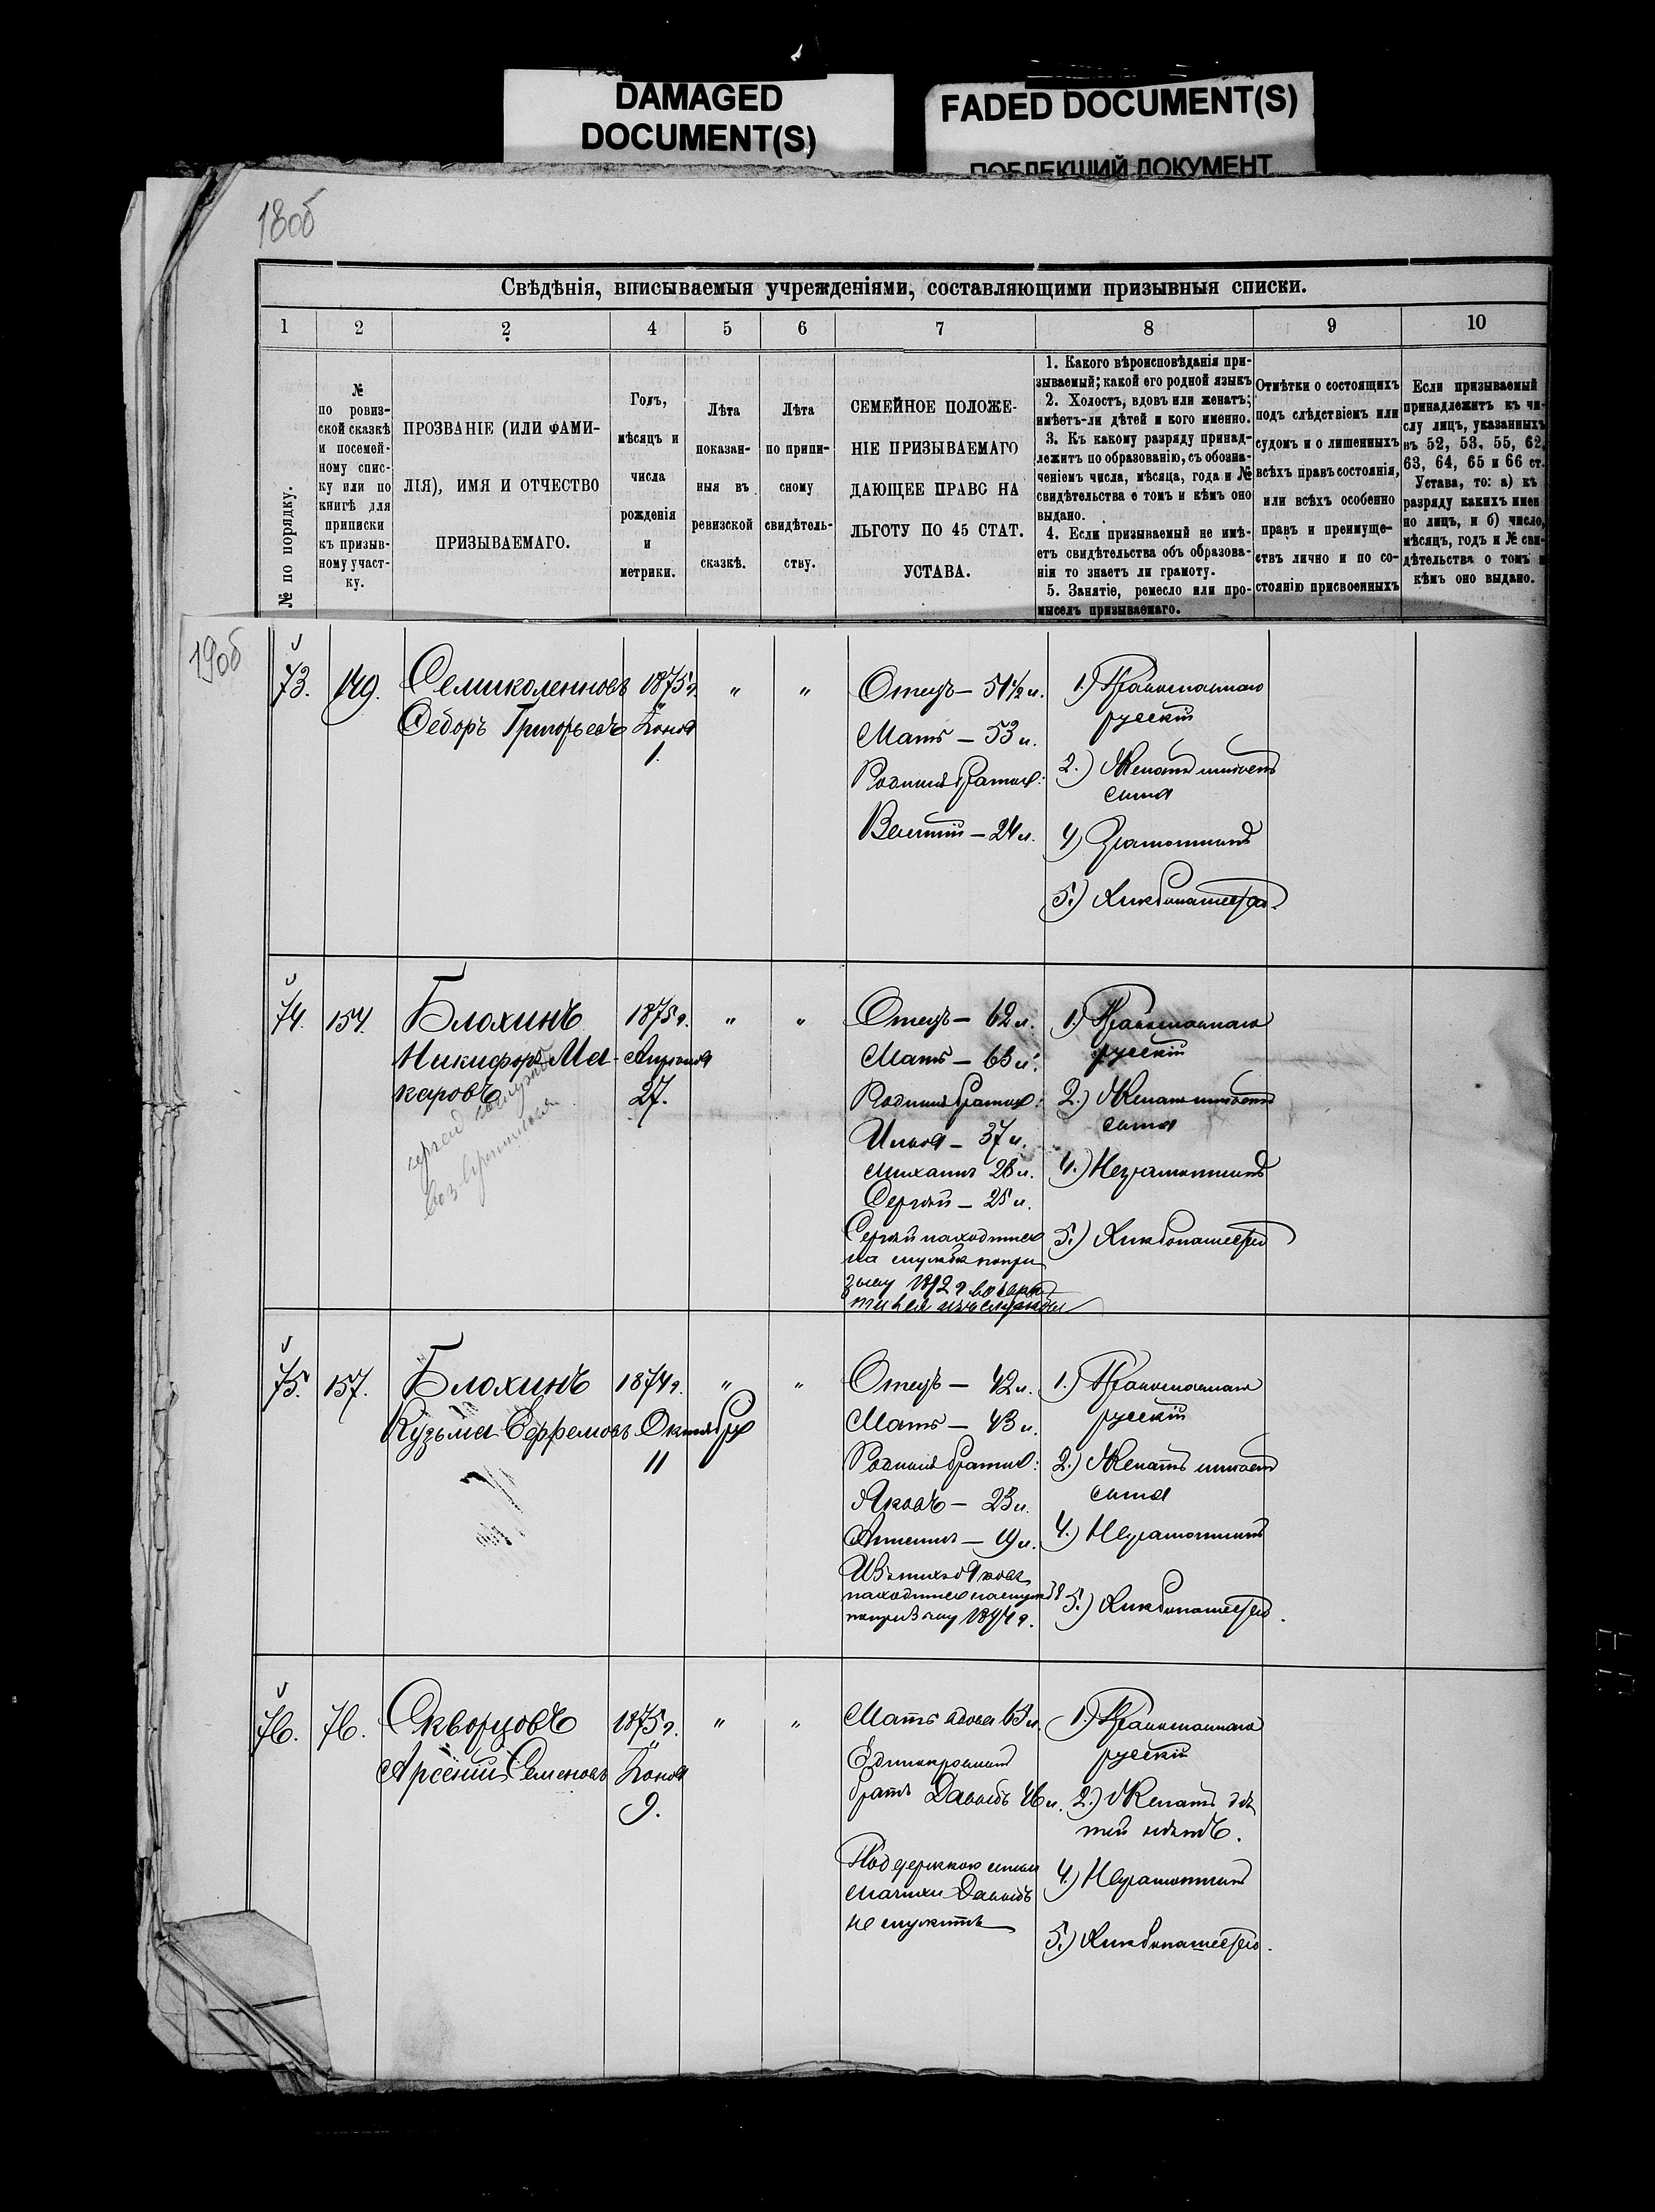 DAMAGED
DOCUMENT(S)
FADED DOCUMENT(S)
ПОБЛЕКШИЙ ДОКУМЕНТ
18об
Свѣдѣнія, вписываемыя учрежденіями, составляющими призывныя списки.
1 2 2 4 5 6 7 8 9 10
№ по порядку.
№
по ревиз-
ской сказкѣ
и посемей-
ному спис-
ку или по
книгѣ для
приписки
къ призыв-
ному участ-
ку.
ПРОЗВАНІЕ (ИЛИ ФАМИ-
ЛІЯ), ИМЯ И ОТЧЕСТВО
ПРИЗЫВАЕМАГО.
Годъ,
мѣсяцъ и
числа
рожденія
и
метрики.
Лѣта
показан-
ныя въ
ревизской
сказкѣ.
Лѣта
по припи-
сному
свидѣтель-
ству.
СЕМЕЙНОЕ ПОЛОЖЕ-
НІЕ ПРИЗЫВАЕМАГО
ДАЮЩЕЕ ПРАВО НА
ЛЬГОТУ ПО 45 СТАТ.
УСТАВА.
1. Какого вѣроисповѣданія при-
зываемый; какой его родной языкъ
2. Холостъ, вдовъ или женатъ;
имѣетъ-ли дѣтей и кого именно.
3. Къ какому разряду принад-
лежитъ по образованію, съ обозна-
ченіемъ числа, мѣсяца, года и №
свидѣтельства о томъ и кѣмъ оно
выдано.
4. Если призываемый не имѣ-
етъ свидѣтельства объ образова-
ніи то знаетъ ли грамоту.
5. Занятіе, ремесло или про-
мыселъ призываемаго.
Отмѣтки о состоящихъ
подъ слѣдствіемъ или
судомъ и о лишенныхъ
всѣхъ правъ состоянія,
или всѣхъ особенно
правъ и преимуще-
ствъ лично и по со-
стоянію присвоенныхъ
Если призываемый
принадлежитъ къ чи-
слу лицъ, указанныхъ
въ 52, 53, 55, 62,
63, 64, 65 и 66 ст.
Устава, то: а) къ
разряду какихъ имен
но лицъ, и б) число,
мѣсяцъ, годъ и № сви-
дѣтельства о томъ и
кѣмъ оно выдано.
19об
73.
149.
Семиколенновъ
Федоръ Григорьевъ
1875 г.
Іюня
1.
"
"
Отецъ — 51½ л.
Мать — 53 л.
Родныя братья:
24 л.
1.) Православнаго
русскій
2.) Женатъ имѣетъ
сына
4) Грамотный
5.) Хлѣбопашество.
74.
154.
Блохинъ
Никифоръ Ма-
каровъ
Сергей
возвратился
1875 г.
Апрѣля
27.
"
"
Отецъ — 62 л.
Мать — 63 л.
Родныя братья:
Илья — 37 л.
Михаилъ 28 л.
Сергѣй — 25 л.
Сергѣй находится
на службѣ по при
зыву 1892 г возвра
тился изъ службы
1.) Православнаго
русскій
2.) Женатъ имѣетъ
сына
4.) Неграмотный
5.) Хлѣбопашество
75.
157.
Блохинъ
Кузьма Ефремовъ
1874 г.
Октября
11
"
"
Отецъ — 42 л.
Мать — 43 л.
Родныя братья:
Яковъ — 23 л.
19 л.
Изъ нихъ Яковъ
находится на службѣ
по призыву 1894 г.
1.) Православнаго
русскій
2.) Женатъ имѣетъ
сына
4.) Неграмотный
5.) Хлѣбопашество.
76.
76.
Скворцовъ
Арсеній Семеновъ
1875 г.
Іюня
9.
"
"
Мать вдова 63 л.
Единокровный
братъ Давыдъ 46 л.
мачихи Давыдъ
не служитъ
1.) Православнаго
русскій
2.) Женатъ дѣ
тей нѣтъ.
4.) Неграмотный
5.) Хлѣбопашество.